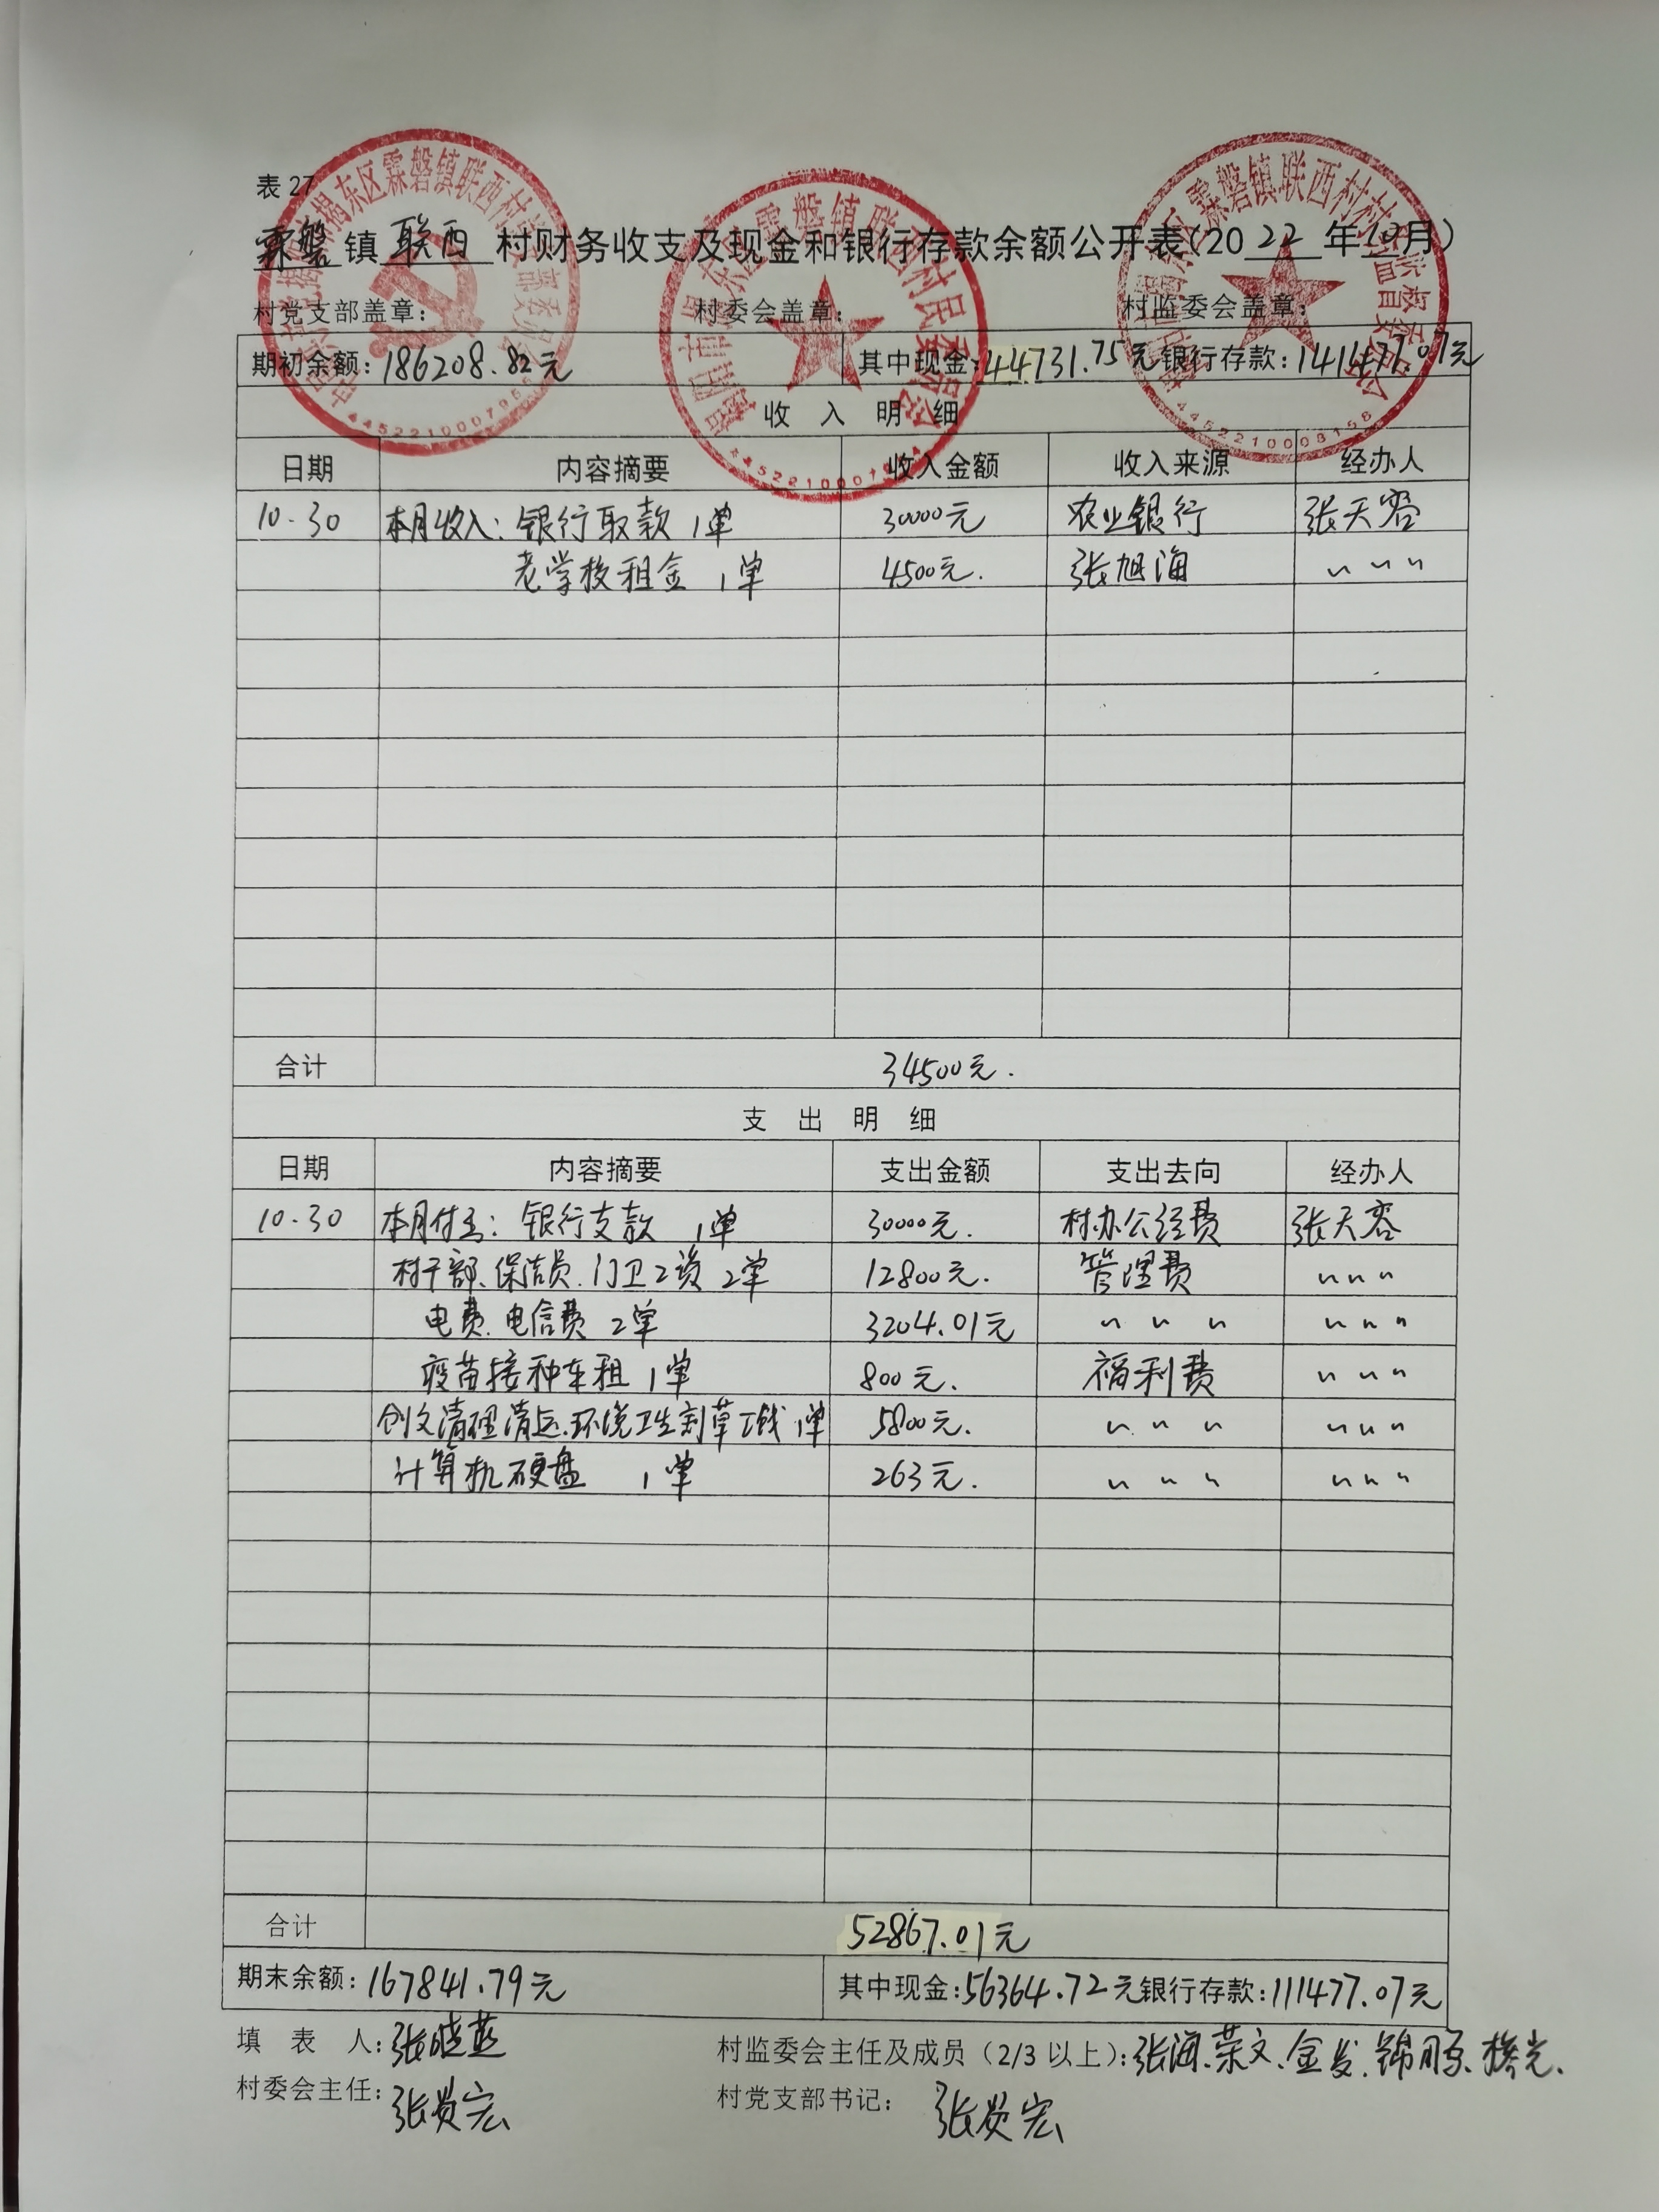 表 27
霖磐镇联西村财务收支及现金和银行存款余额公开表(2022年10月)
村党支部盖章: 村委会盖章: 村监委会盖章:
期初余额:186208.82元 其中现金:44731.75元 银行存款:141477.07元
收 入 明 细
日期 内容摘要 收入金额 收入来源 经办人
10.30 本月收入: 银行取款 1单 30000元 农业银行 张天容
老学校租金 1单 4500元. 张旭海 〃 〃 〃
合计 34500元.
支 出 明 细
日期 内容摘要 支出金额 支出去向 经办人
10.30 本月付出: 银行支款 1单 30000元. 村办公经费 张天容
村干部、保洁员、门卫工资 2单 12800元. 管理费 〃 〃 〃
电费、电信费 2单 3204.01元 〃 〃 〃 〃 〃 〃
疫苗接种车租 1单 800元. 福利费 〃 〃 〃
创文清理清运、环境卫生割草工钱 1单 5800元. 〃 〃 〃 〃 〃 〃
计算机硬盘 1单 263元. 〃 〃 〃 〃 〃 〃
合计 52867.01元
期末余额:167841.79元 其中现金:56364.72元 银行存款:111477.07元
填 表 人:张晓燕 村监委会主任及成员(2/3 以上):张海、荣文、金发、锦
村委会主任:张贤宏 村党支部书记: 张贤宏